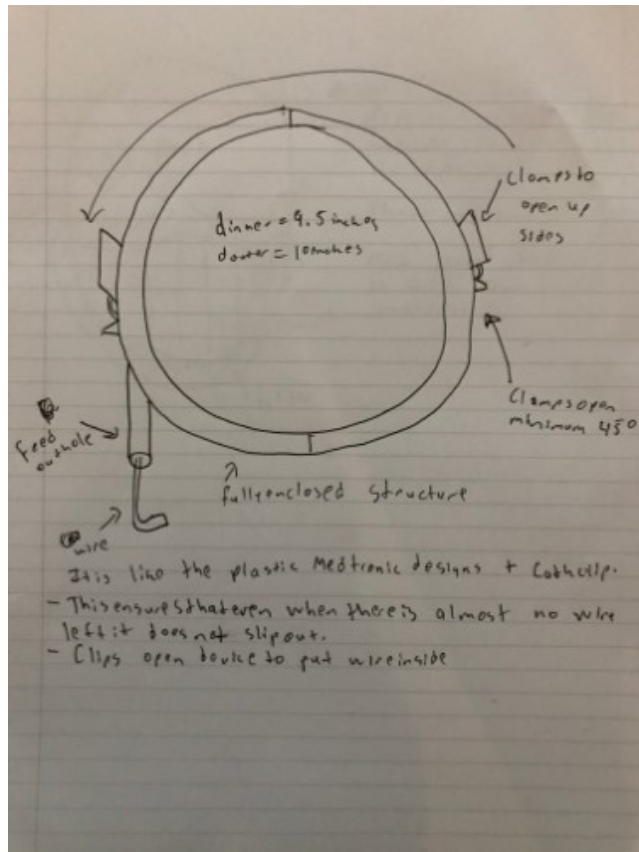 dinner = 9.5 inches
douter = 10 inches
Clamps to
open up
sides
Clamps open
minimum 45°
Feed
outhole
fully enclosed structure
wire
It is like the plastic Medtronic designs + Cathclip.
- This ensures that even when there is almost no wire
left it does not slip out.
- Clips open device to put wire inside